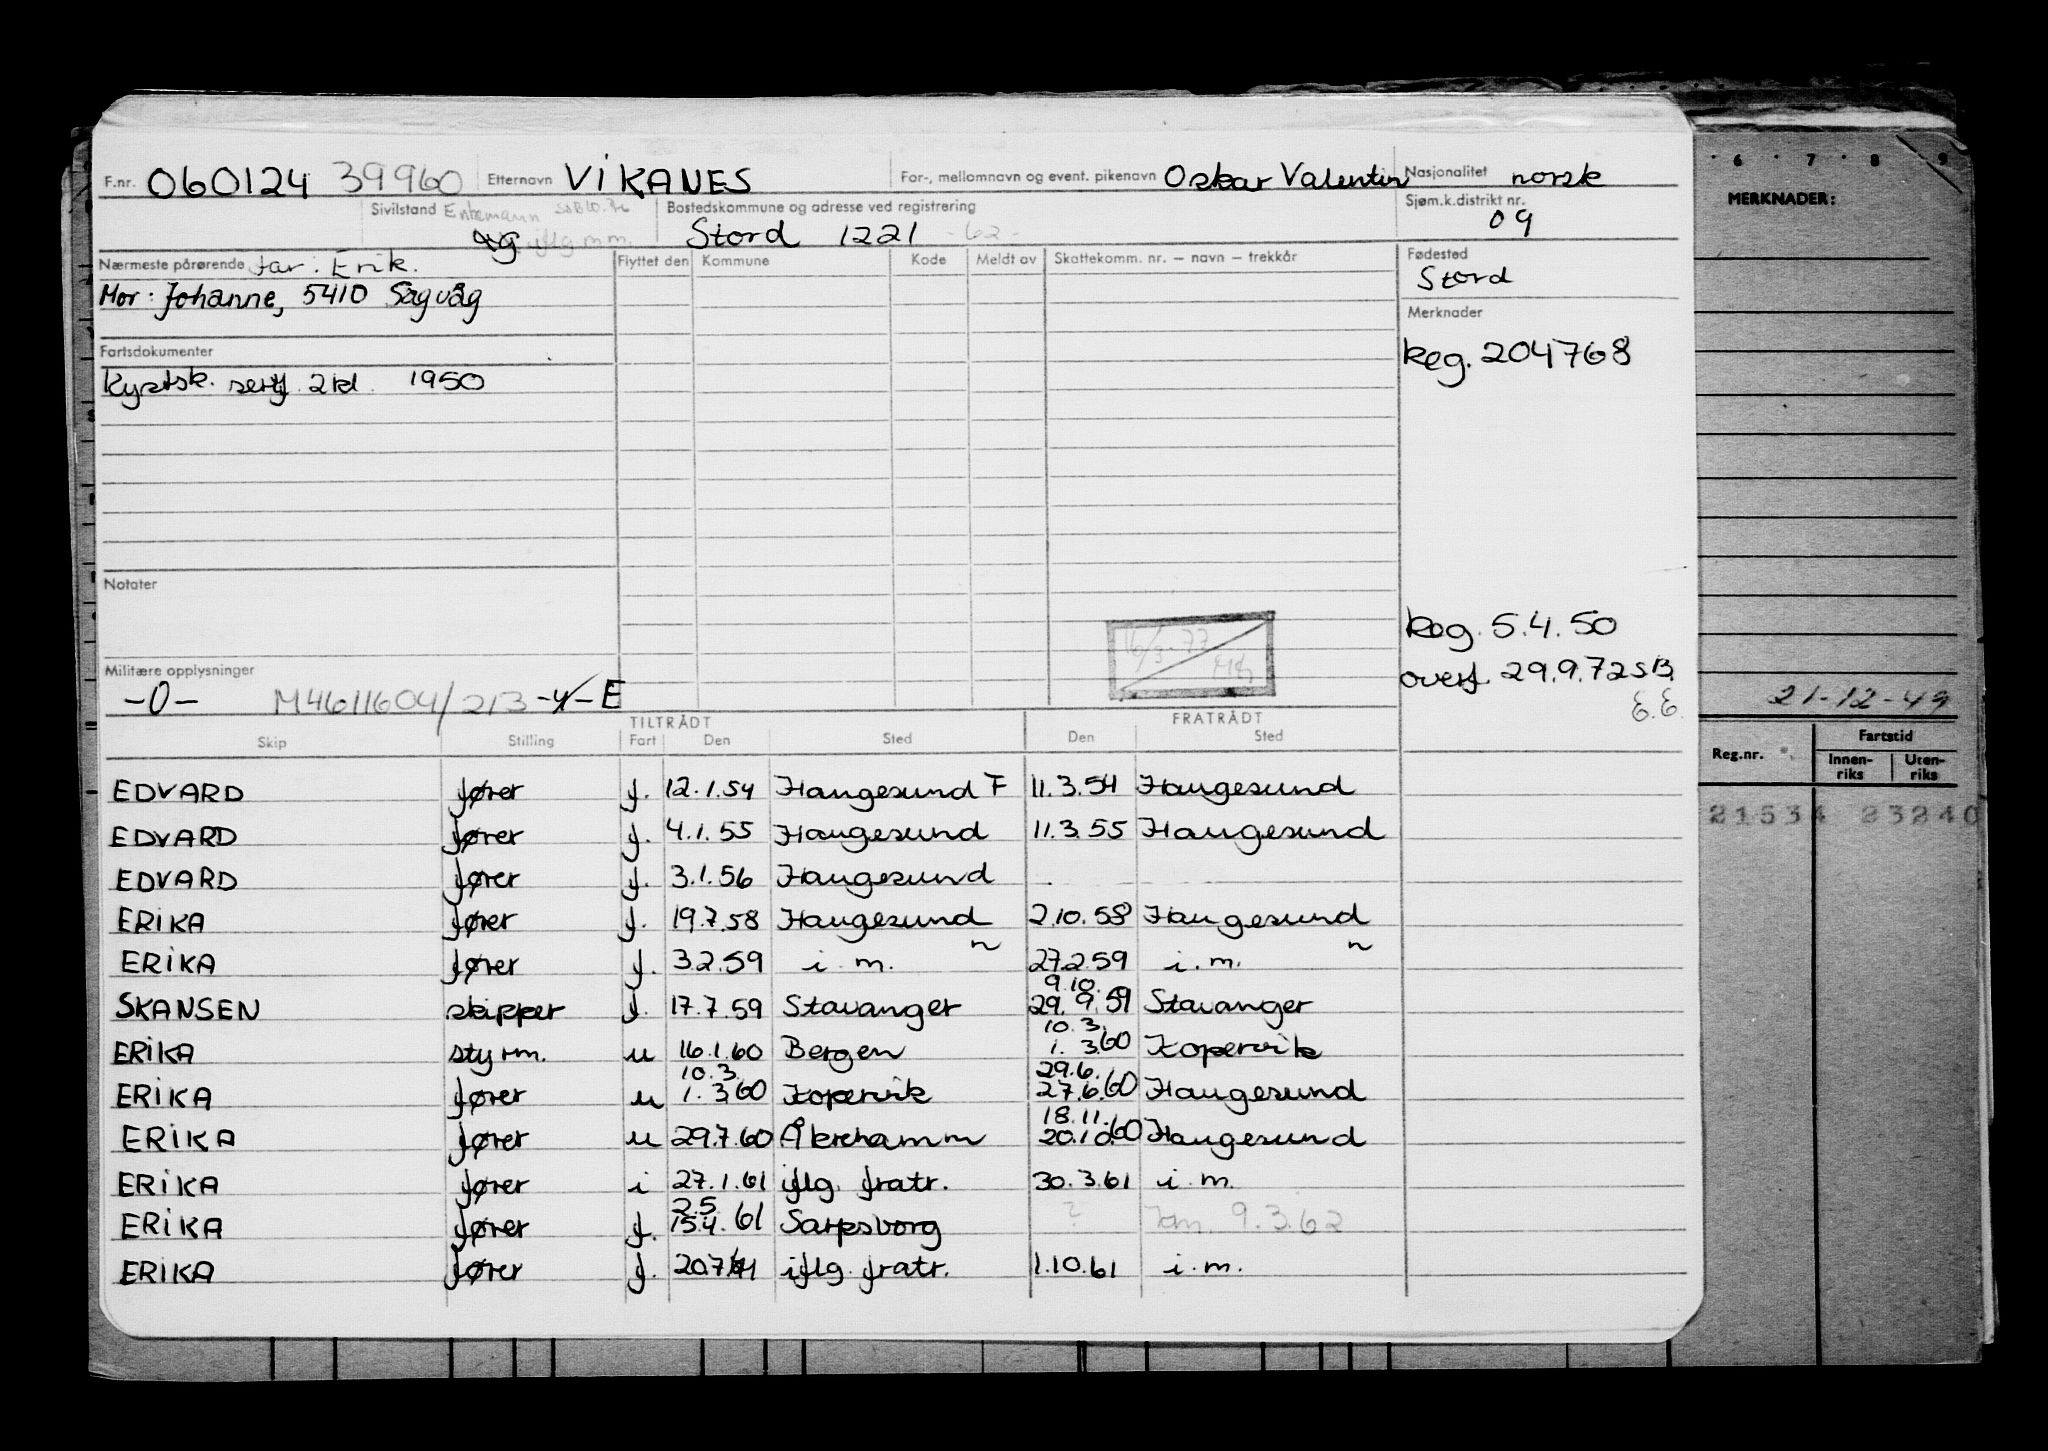 F.nr. 060124 39960 Etternavn VIKANES For-, mellomnavn og event. pikenavn Oskar Valentin Nasjonalitet norsk
Sivilstand Enkemann Bostedskommune og adresse ved registrering Sjøm.k.distrikt nr.
ug iflg mm. Stord 1221 -62- 09
Nærmeste pårørende Far: Erik. Flyttet den Kommune Kode Meldt av Skattekomm. nr. – navn – trekkår Fødested
Mor: Johanne, 5410 Sagvåg Stord
Merknader
Fartsdokumenter Reg. 204768
Kystsk. sertf. 2 kl. 1950
Notater
Reg. 5.4.50
16/3-77
Militære opplysninger overf. 29.9.72 SB.
-0- M4611604/213-4-E E.E.
TILTRÅDT FRATRÅDT
Skip Stilling Fart Den Sted Den Sted
EDVARD fører f. 12.1.54 Haugesund F 11.3.54 Haugesund
EDVARD fører f. 4.1.55 Haugesund 11.3.55 Haugesund
EDVARD fører f. 3.1.56 Haugesund
ERIKA fører f. 19.7.58 Haugesund 2.10.58 Haugesund
ERIKA fører f. 3.2.59 i.m. 27.2.59 i.m.
9.10.
SKANSEN skipper f. 17.7.59 Stavanger 29.9.59 Stavanger
10.3.
ERIKA styrm. u 16.1.60 Bergen 1.3.60 Kopervik
10.3. 29.6.
ERIKA fører u 1.3.60 Kopervik 27.6.60 Haugesund
18.11.
ERIKA fører u 29.7.60 Åkrehamn 20.10.60 Haugesund
ERIKA fører i 27.1.61 iflg. fratr. 30.3.61 i.m.
2.5.
ERIKA fører f. 15.4.61 Sarpsborg ? 9.3.62
ERIKA fører f. 20.7.61 iflg. fratr. 1.10.61 i.m.
6 7 8 9
MERKNADER:
21-12-49
Reg.nr. Fartstid
Innen-riks Uten-riks
21534 23240